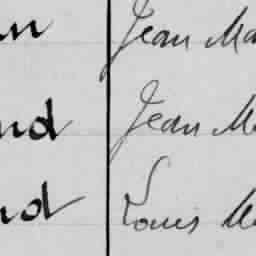 Jean Ma
nd Jean M
nd Louis M